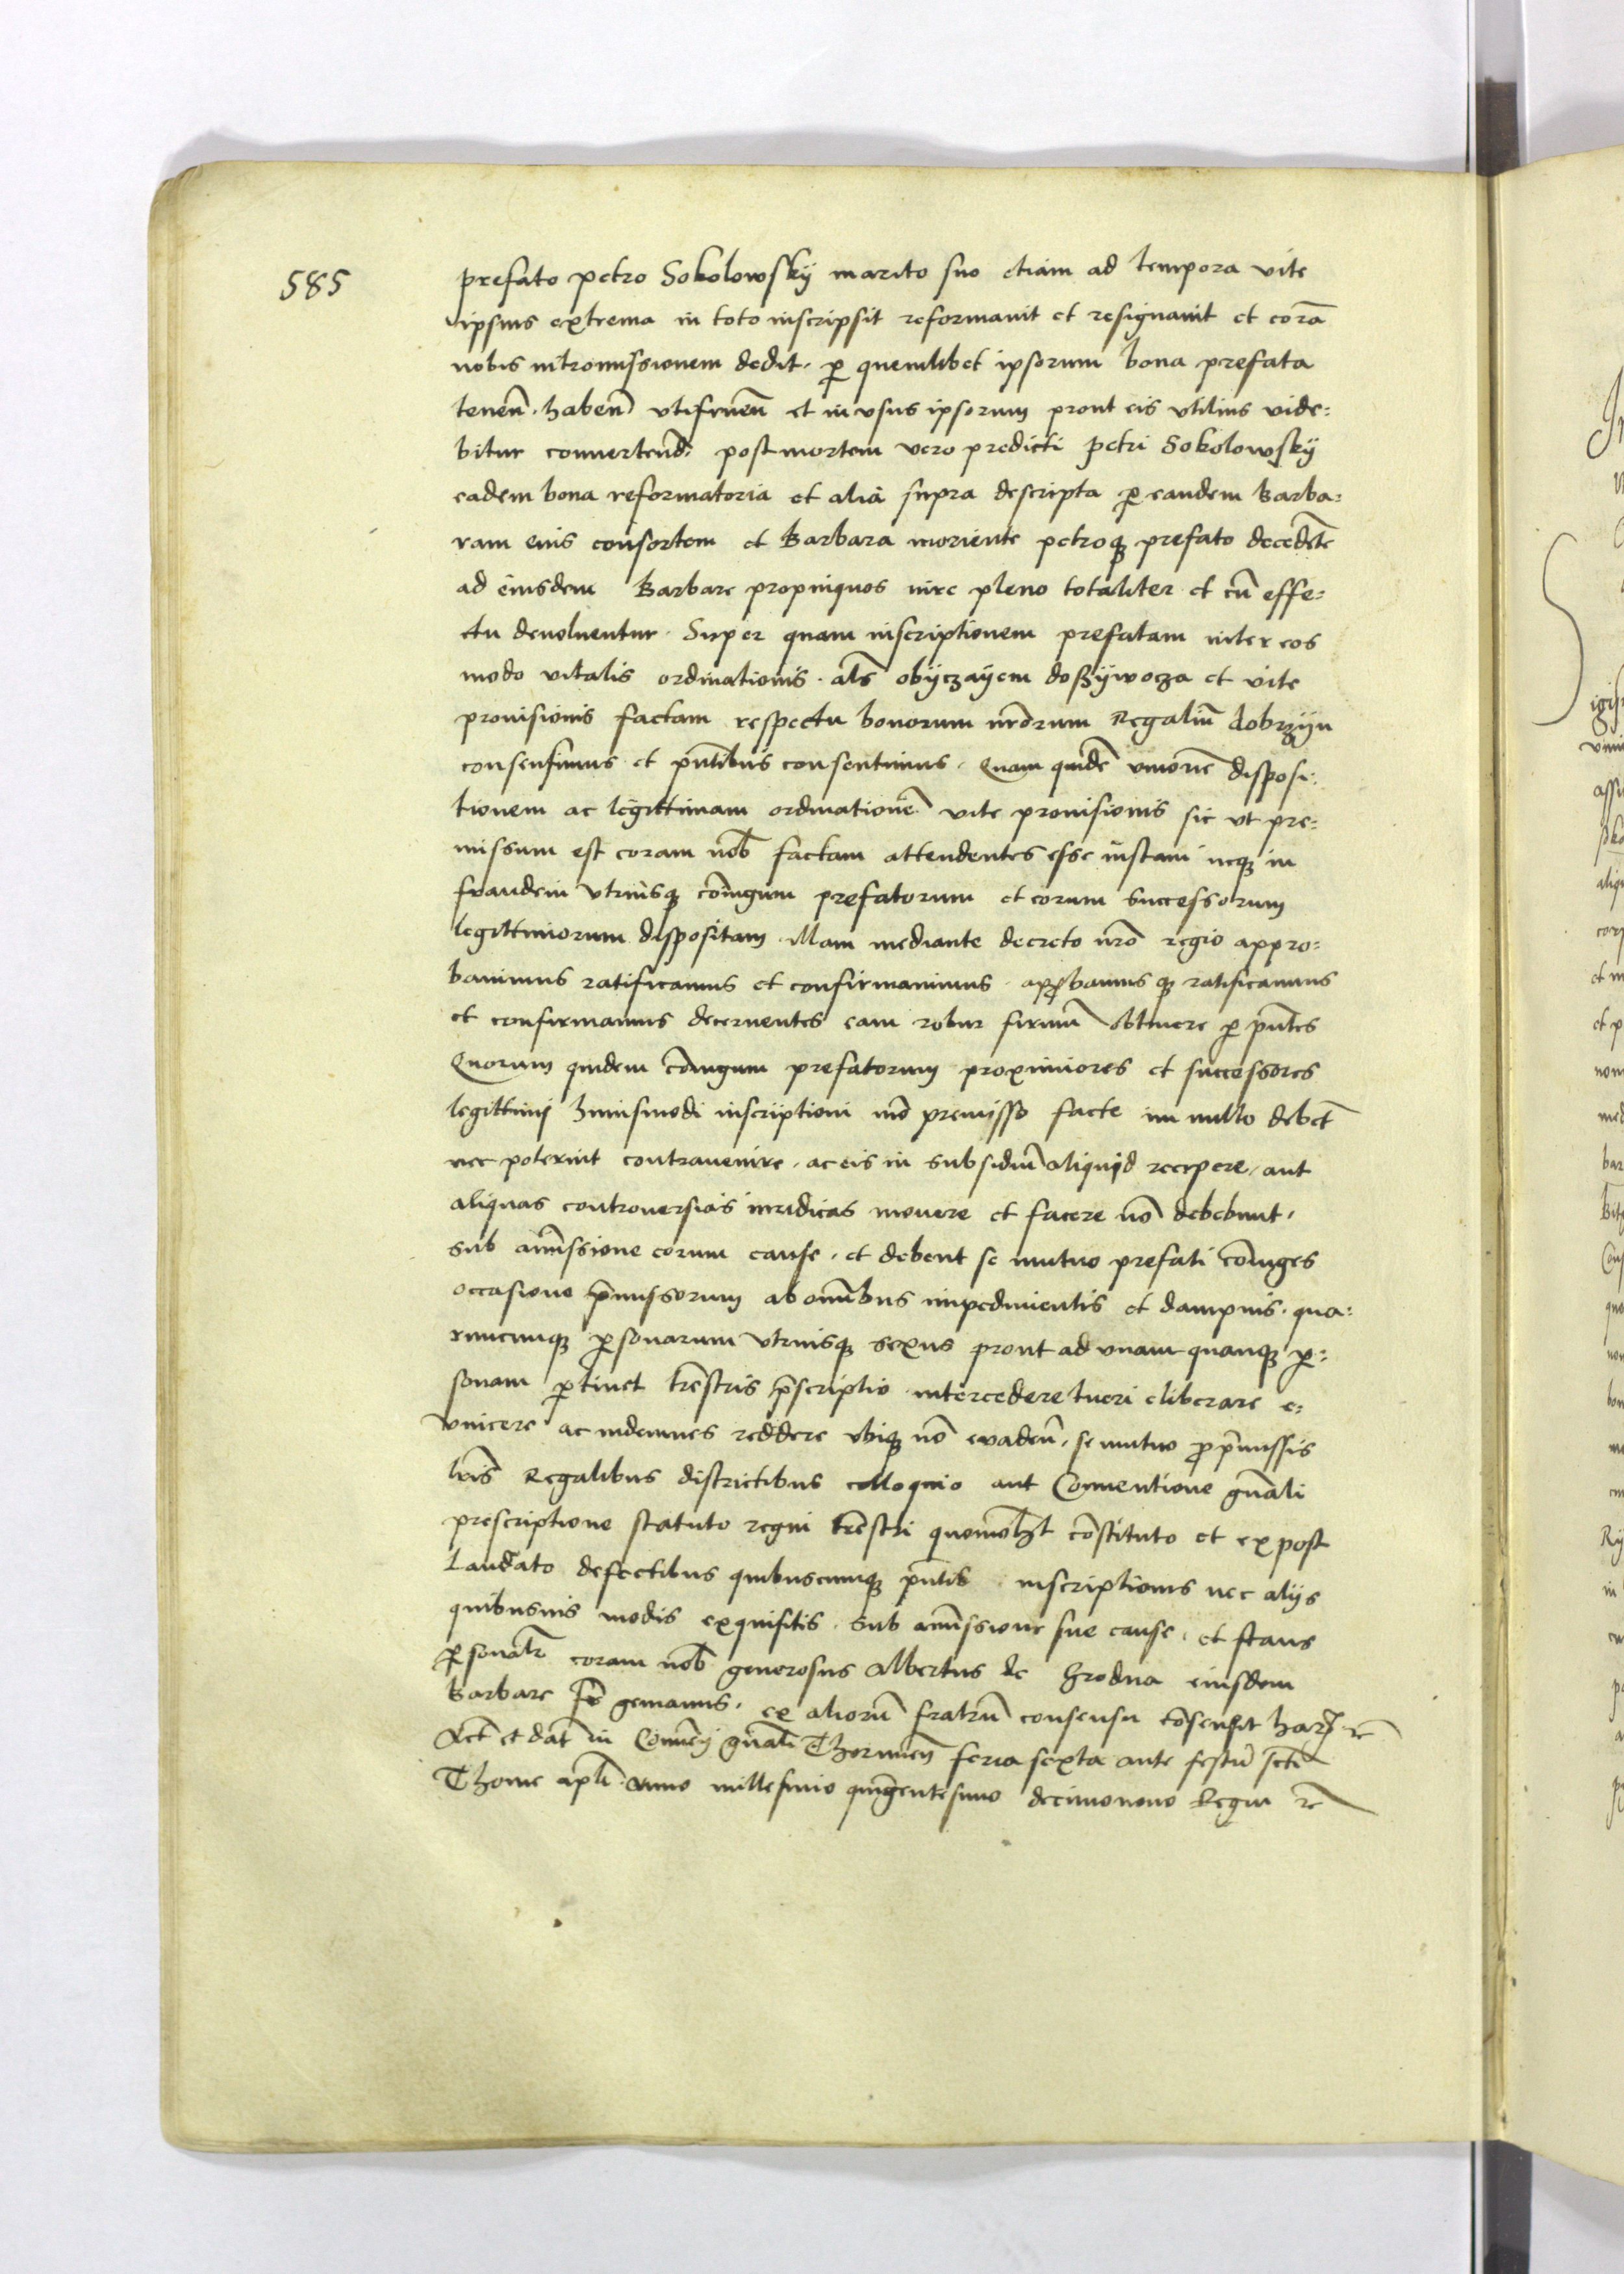 585
prefato petro Sokolowskÿ marito suo etiam ad tempora vite
ipsius extrema in toto inscripsit reformavit et resignavit et corā
nobis intromissionem dedit. ꝑ quemlibet ipsorum bona prefata
tenen̄. haben̄ utifruen̄ et in usus ipsorum prout eis utilius vide=
bitur convertend̄. post mortem vero predicti petri Sokolowskÿ
eadem bona reformatoria et alia supra descripta ꝑ eandem Barba=
ram eius consortem et Barbara moriente petroqꝫ prefato decedēte
ad eiusdem Barbare propinquos iure pleno totaliter et cū effe=
ctu devoluentur. Super quam inscriptionem prefatam inter eos
modo vitalis ordinationis. al̄s obÿczaÿem doßÿwocza et vite
provisionis factam respectu bonorum nr̄orum Regaliū dobrzÿn
consensimus et pn̄tibus consentimus. Quam quidē unionē disposi=
tionem ac legittimam ordinationē vite provisionis sic ut pre=
missum est coram nob̄ factam attendentes esse iustam neqꝫ in
fraudem utriusqꝫ cōiugum prefatorum et eorum successorum
legittimorum dispositam illam mediante decreto nr̄o regio appro=
bavimus ratificavimus et confirmavimus. apꝓbamus qꝫ ratificamus
et confirmamus decernentes eam robur firmū obtinere ꝑ pn̄tes
Quorum quidem cōiugum prefatorum proximiores et successores
legittimi huiusmodi inscriptioni mō premisso facte in nullo debēt
nec poterint contravenire. ac eis in subsidiū aliquid recipere. aut
aliquas controversias iuridicas movere et facere nō debebunt.
sub am̄issione eorum cause. et debent se mutuo prefati cōiuges
occasione p̄missorum ab om̄ibus impedimentis et dampnis. qua=
rumcunqꝫ ꝑsonarum utriusqꝫ sexus prout ad unam quanqꝫ ꝑ=
sonam ꝑtinet trēstris p̄scriptio intercedere tueri eliberare e=
vincere ac indemnes reddere ubiqꝫ nō evaden̄. se mutuo ꝓ p̄missis
lr̄is Regalibus districtibus colloquio aut Conventione gn̄ali
prescriptione statuto regni trēstri quomōlt cōstituto et expost
laudato defectibus quibuscunqꝫ pn̄tis inscriptionis nec alijs
quibusvis modis exquisitis. sub am̄issione sue cause. et stans
ꝑsonalr̄ coram nob̄ generosus Albertus de Grodna eiusdem
Barbare fr̄ germanus. ex aliorū fratrū consensu cōsensit harꝫ rē
Act̄ et dat̄ in Conven̄ gn̄ali Thorunen̄ feria sexta ante festū sct̄i
Thome apl̄i. Anno millesimo quīgentesimo decimonono Regni rē